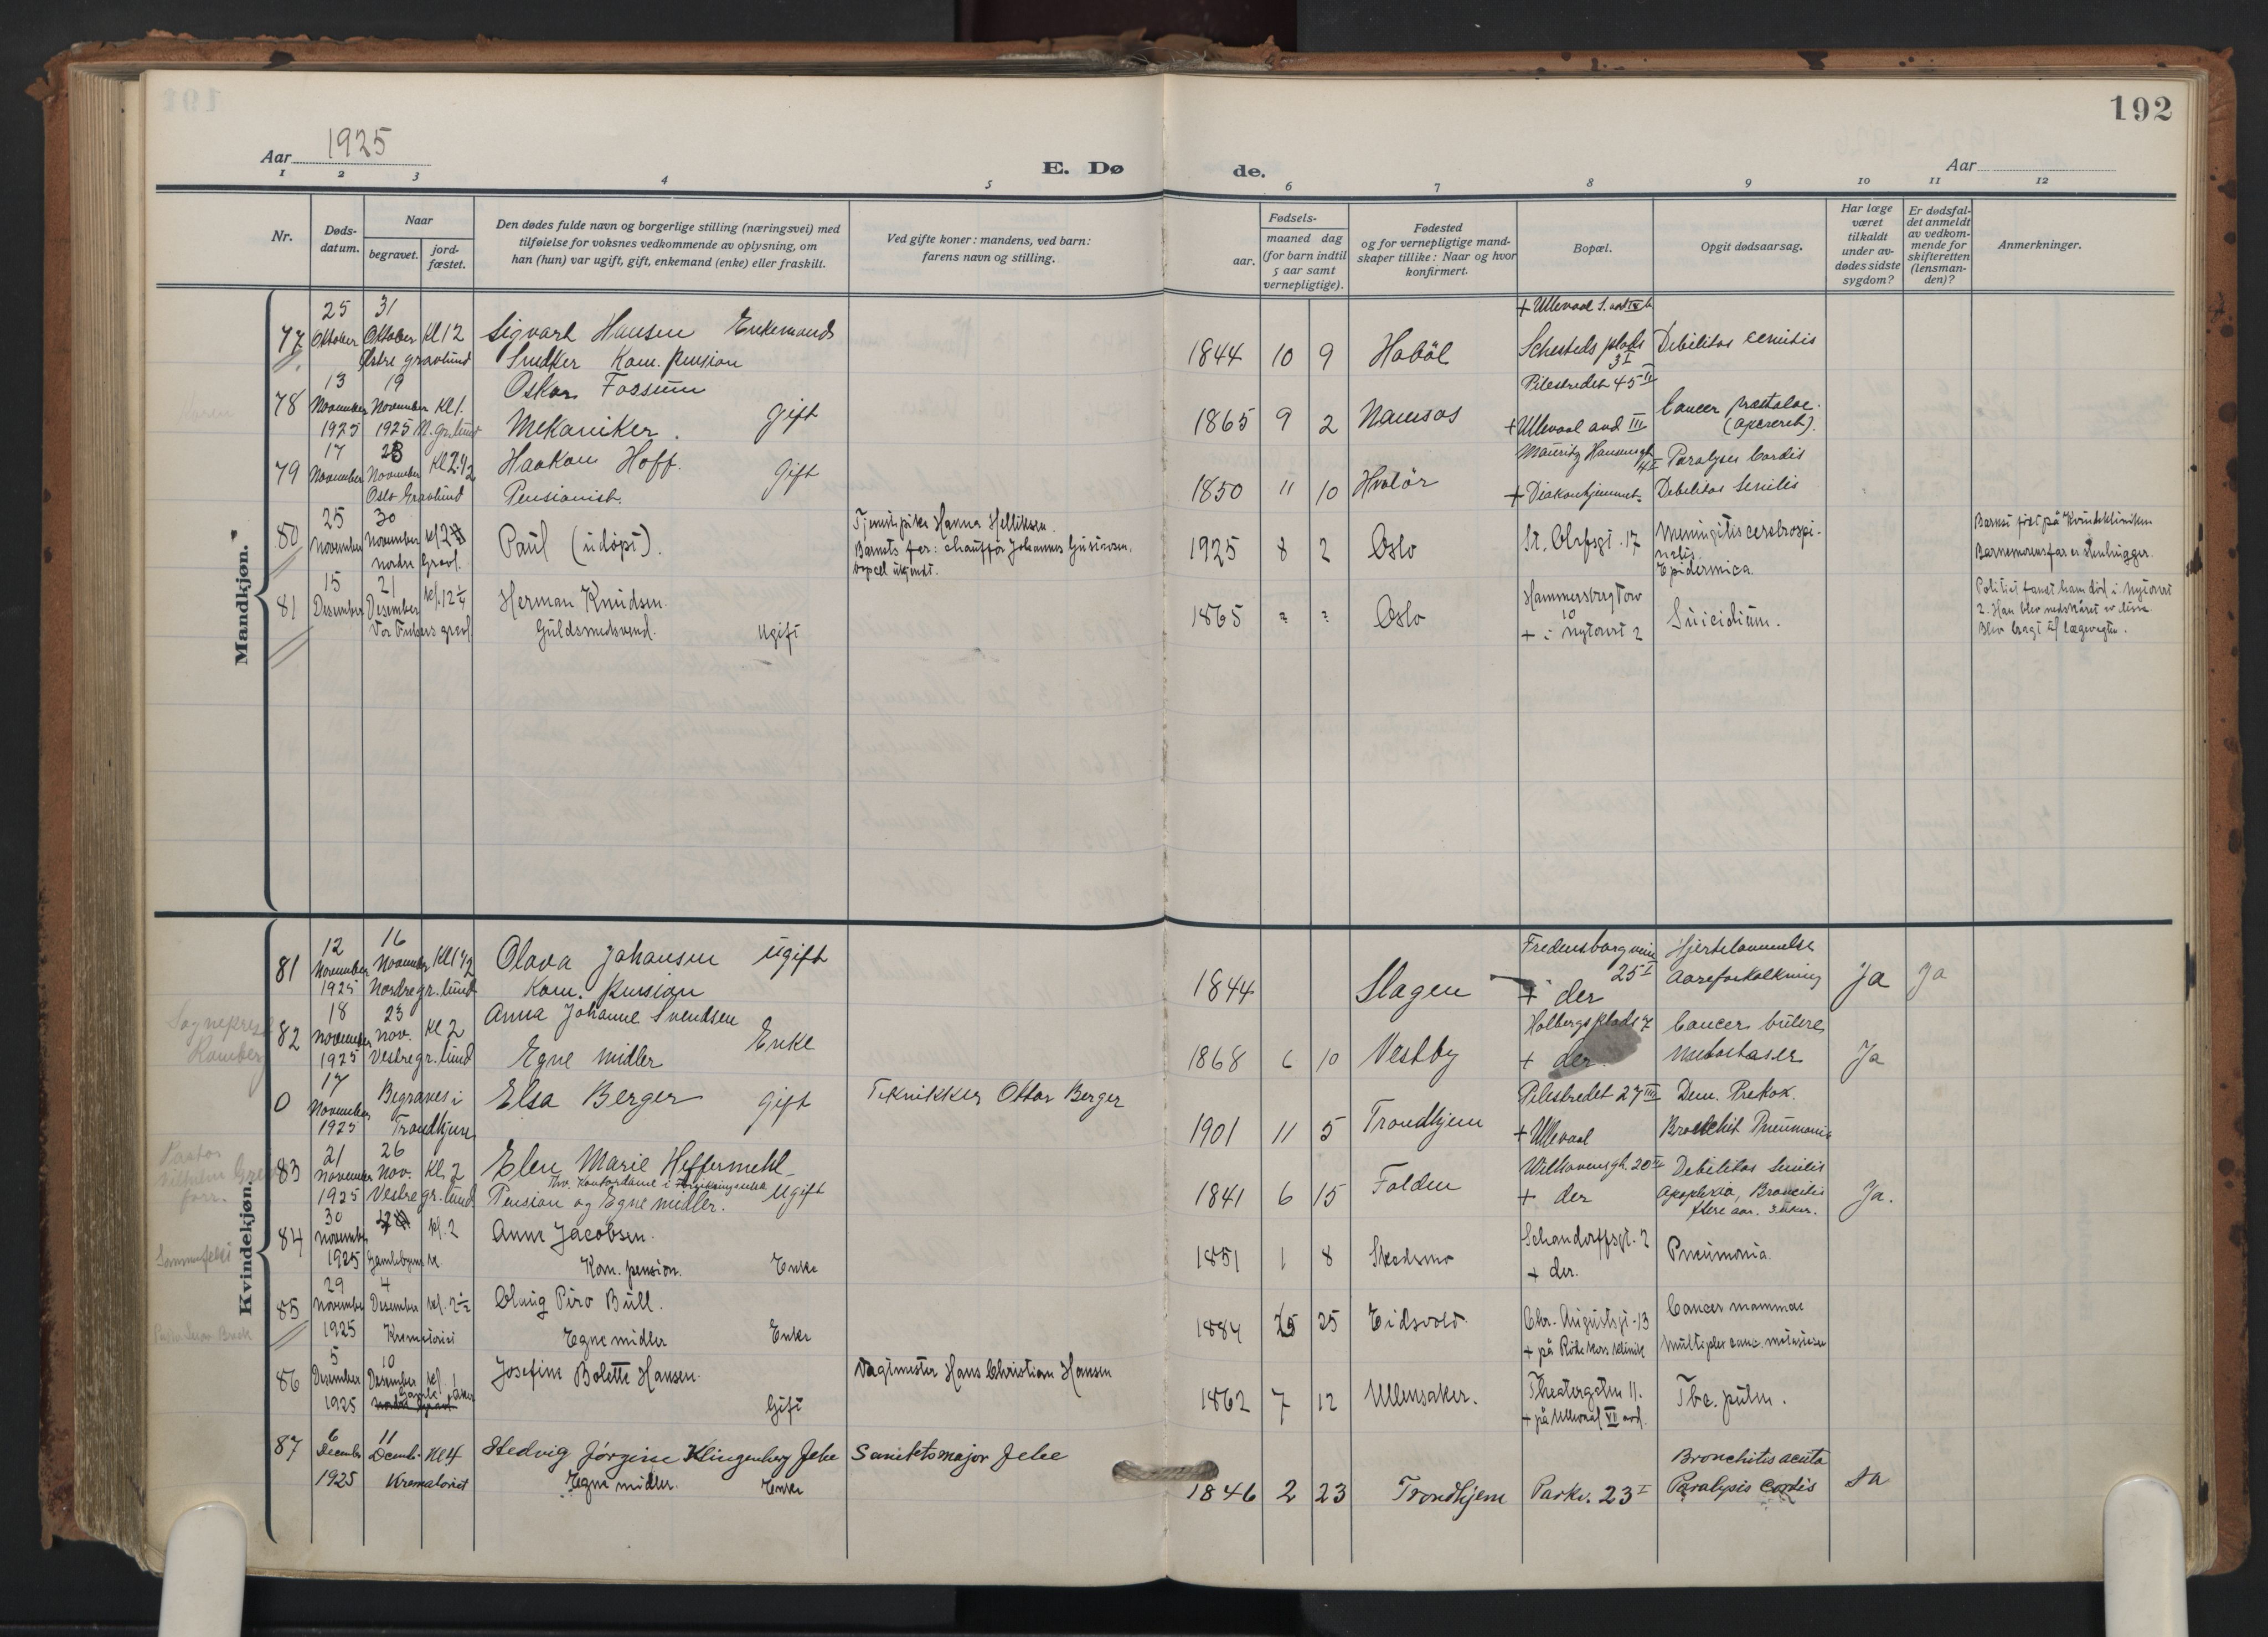 192
Aar 1925
E. Dø de.
Aar
1 2 3 4 5 6 7 8 9 10 11 12
Nr.
Døds-
datum.
Naar
begravet.
jord-
fæstet.
Den dødes fulde navn og borgerlige stilling (næringsvei) med
tilføielse for voksnes vedkommende av oplysning, om
han (hun) var ugift, gift, enkemand (enke) eller fraskilt.
Ved gifte koner: mandens, ved barn:
farens navn og stilling.
Fødsels-
aar.
maaned dag
(for barn indtil
5 aar samt
vernepligtige).
Fødested
og for vernepligtige mand-
skaper tillike: Naar og hvor
konfirmert.
Bopæl.
Opgit dødsaarsag.
Har læge
været
tilkaldt
under av-
dødes sidste
sygdom?
Er dødsfal-
det anmeldt
av vedkom-
mende for
skifteretten
(lensman-
den)?
Anmerkninger.
Mandkjøn.
25 31
77 Oktober Oktober Kl 12 Sigvart Hansen Enkemand
Østre gravlund Snedker Kom. pension
1844 10 9 Haböl Schesteds plads 3 I Debilitas senilis
13 19 Oskar Fossum
78 November November Kl 1.
1925 1925 N. gr.lund Mekaniker. Gift
1865 9 2 Namsos Pilestredet 45 II
+ Ullevaal avd III Cancer prostatae.
(operert).
17 23
79 November November Kl 2 1/2 Haakon Hoff. Gift
Oslo Gravlund Pensionist.
1850 11 10 Hvalör Mauritz Hansensgt 4 I Paralysis Cordis
+ Diakonhjemmet. Debilitas senilis
25 30
80 November November kl 2 Paul (udöpt).
nordre Gravl.
Tjenestepike Hanna Helliksen.
Barnets far: chauffør Johannes Gustavsen,
bopæl ukjendt.
1925 8 2 Oslo St. Olafsgt. 17 Meningitis cerebrospi-
nalis
Epidermica.
Barnet født på Kvindeklinikken
Barnemorens far er stenhugger.
15 21
81 Desember Desember kl. 12 1/4 Herman Knudsen.
Vor Frelsers gravl. Guldsmedsvend. Ugift
1865 ? ? Oslo Hammersborg Torv
10
+ i Nytorvet 2 Suicidium.
Politiet fandt ham död i Nytorvet
2. Han blev nedskåret av disse
Blev bragt til lægevagten.
Kvindekjøn.
12 16
81 November November Kl 1 1/2 Olava Johansen Ugift
1925 Nordre gr.lund Kom. pension
1844 Slagen Fredensborgveien
25 I
+ der Hjertelammelse
Aareforkalkning Ja Ja
18 23 Anna Johanne Svendsen
82 November Nov. Kl 2 Enke
1925 Vestre gr.lund Egne midler
1868 6 10 Vestby Holbergs plads 7
+ der. Cancer uteres
Metastaser Ja
17
0 November Begraves i Elsa Berger Gift Teknikker Ottar Berger
1925 Trondhjem
1901 11 5 Trondhjem Pilestredet 27 III
+ Ullevaal Dem. Prekox.
Bronchit Pneumonia
21 26
83 November Nov. Kl 2 Elen Marie Heffermehl
1925 Vestre gr.lund Pension og Egne midler. Ugift
1841 6 15 Folden + der Debilitas Senilis
Apoplexia, Ja.
30
84 November kl. 2 Anne Jacobsen.
1925 Gamlebyens k. Kom. pension. Enke
1851 1 8 Skedsmo Schandorffsgt. 2
+ der. Pneumonia.
29 4
85 November Desember kl. 2 1/2 Olaug Piro Bull.
1925 Krematoriet Egne midler Enke
1884 25 Eidsvold Chr. Augustsgt. 13
+ på Röde Kors klinik Cancer mammae
multiple canc. metastaser
5 10
86 Desember Desember kl. 1 Josefine Bolette Hansen. Vagtmester Hans Christian Hansen
1925 Gamle Aker Gift
1862 7 12 Ullensaker. Theatergaten 11.
+ på Ullevaal VII avd. Tbc. pulm.
6 11
87 December Decemb. Kl 4 Hedvig Jörgine Klingenberg Jebe Sanitetsmajor Jebe
1925 Krematoriet Egne midler. Enke
1846 2 23 Trondhjem Parkv. 23 I Bronchitis acuta
Paralysis Cordis Ja